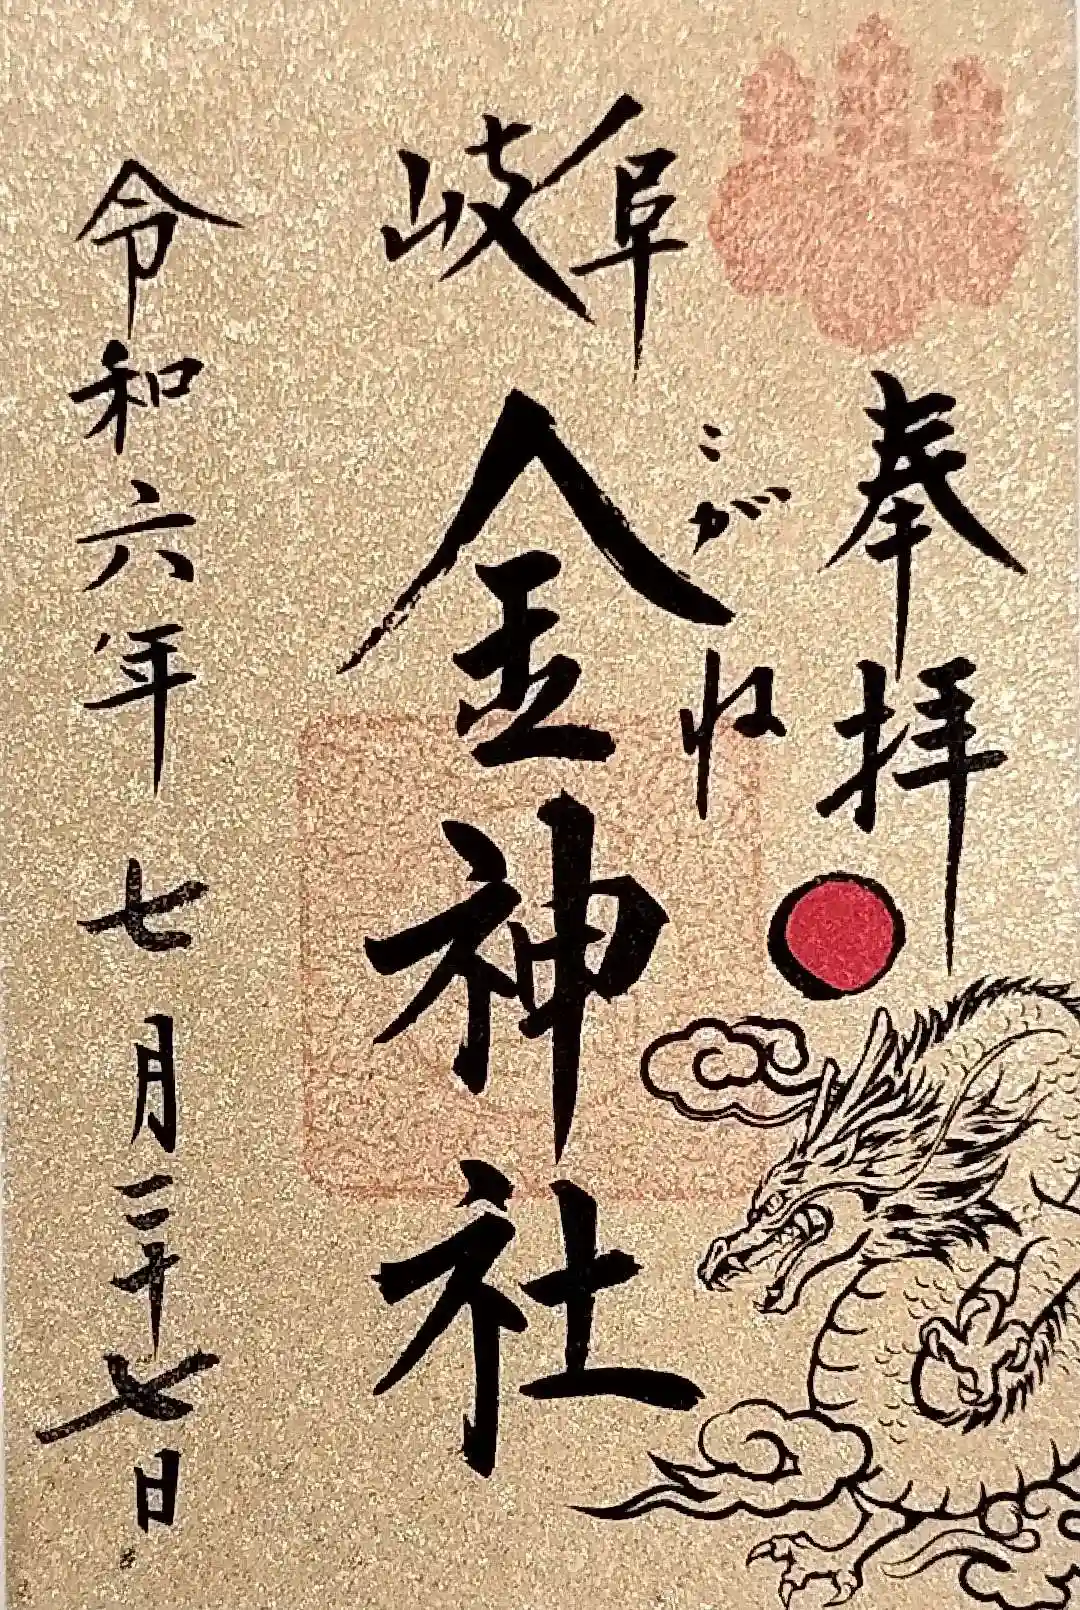 奉拝
岐阜
こがね
金神社
令和六年七月二十七日